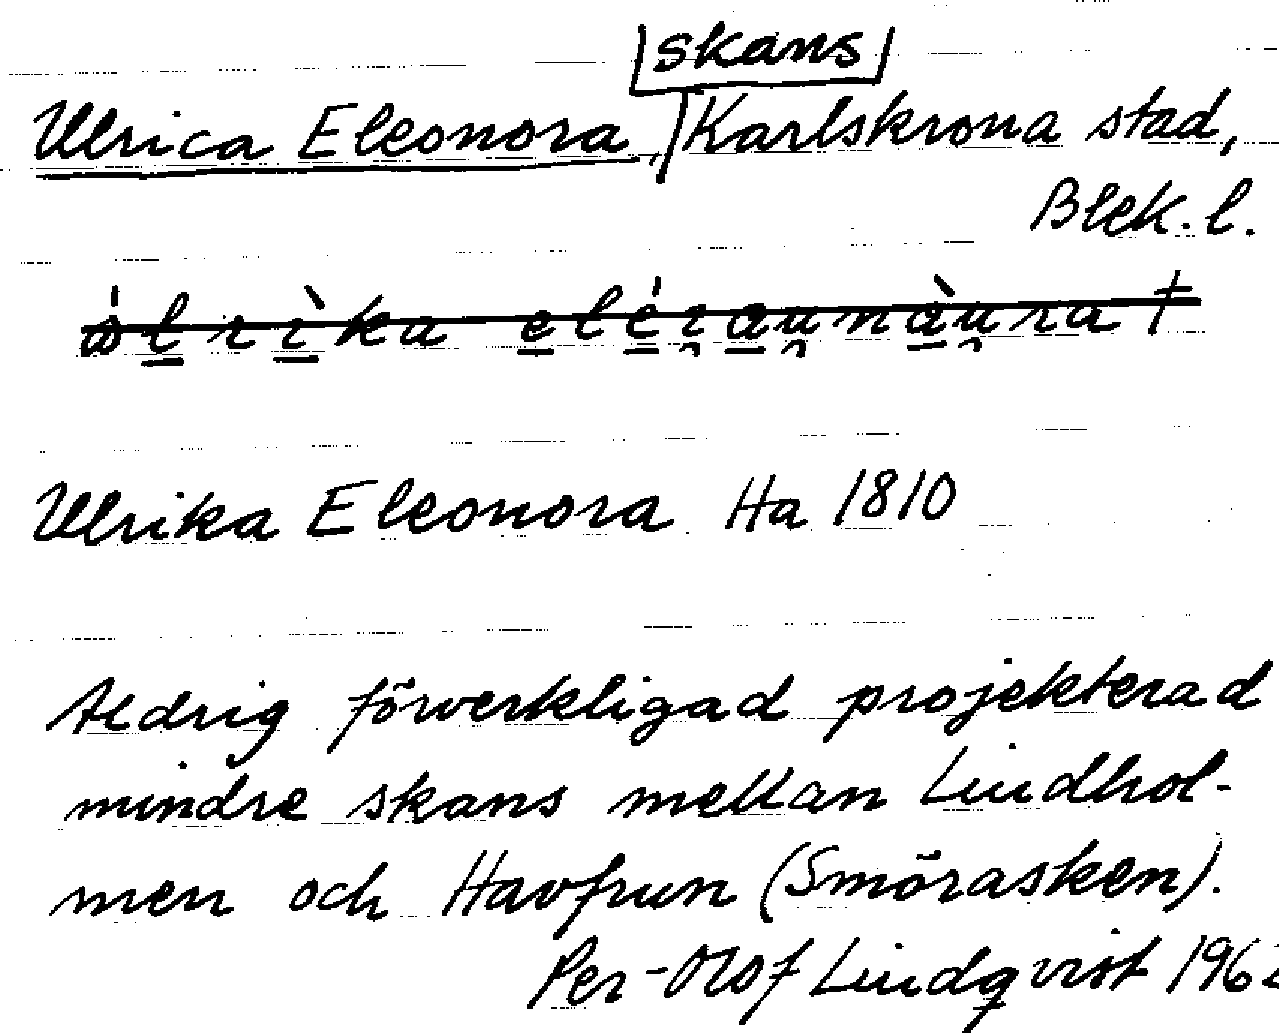 skans
Ulrica Eleonora, Karlskrona stad,
Blek. l.
Ulrika Eleonora Ha 1810
Aldrig förverkligad projekterad
mindre skans mellan Lindhol-
men och Havfrun (Smörasken).
Per-Olof Lindqvist